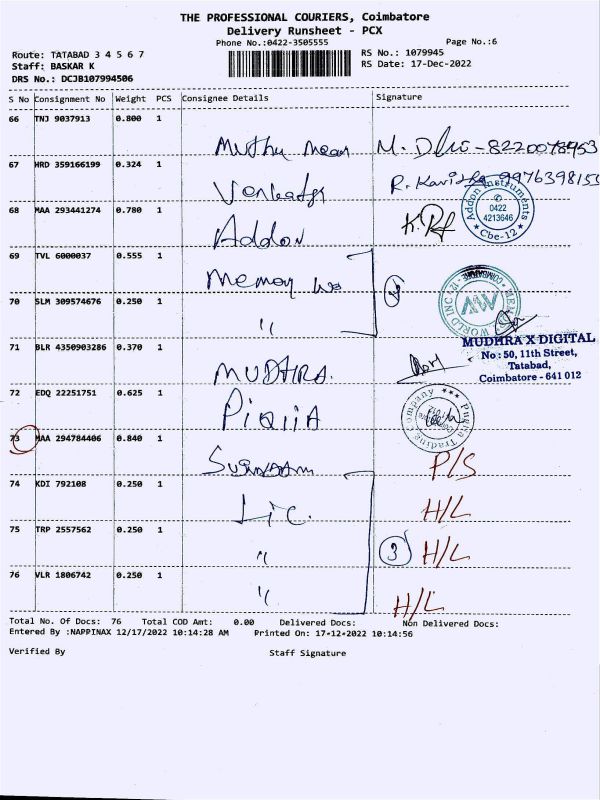 THE PROFESSIONAL COURIERS, Coimbatore
Delivery Runsheet - PCX
Phone No.:0422-3505555
Page No.:6
Route: TATABAD 3 4 5 6 7
RS No.: 1079945
Staff: BASKAR K
RS Date: 17-Dec-2022
DRS No.: DCJB107994506
S No Consignment No Weight PCS Consignee Details Signature
66 TNJ 9037913 0.800 1
Muthu M. - 8220078453
67 HRD 359166199 0.324 1
R. Kavitha
68 MAA 293441274 0.780 1
Addon
Addon Instruments
✆
0422
4213646
★ Cbe-12 ★
69 TVL 6000037 0.555 1
Memory
70 SLM 309574676 0.250 1
"
WORLD INC
MUDHRA X DIGITAL
No : 50, 11th Street,
Tatabad,
Coimbatore - 641 012
71 BLR 4350903286 0.370 1
MUDHRA.
72 EDQ 22251751 0.625 1
Trading Company
73 MAA 294784406 0.840 1
P/S
74 KDI 792108 0.250 1
Lic. H/L
75 TRP 2557562 0.250 1
" 3 H/L
76 VLR 1806742 0.250 1
" H/L
Total No. Of Docs: 76 Total COD Amt: 0.00 Delivered Docs: Non Delivered Docs:
Entered By :NAPPINAX 12/17/2022 10:14:28 AM Printed On: 17-12-2022 10:14:56
Verified By Staff Signature